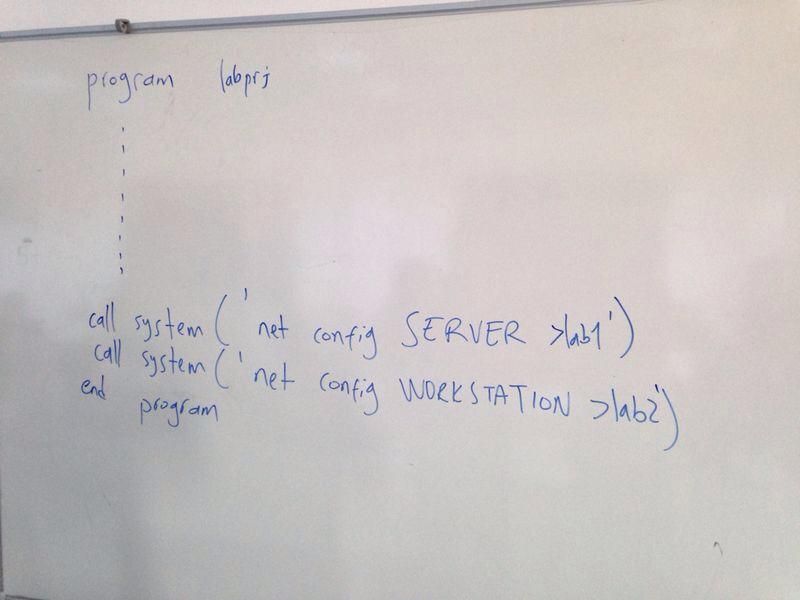 program labprj
call system ('net config SERVER >lab1')
call system ('net config WORKSTATION >lab2')
end program